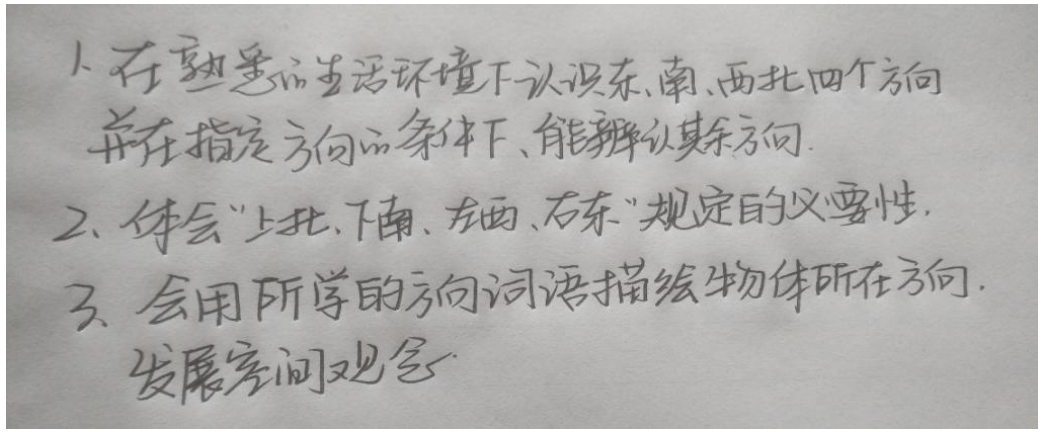 1、在熟悉的生活环境下认识东、南、西北四个方向
并在指定方向的条件下、能辨认其余方向.
2、体会"上北、下南、左西、右东"规定的必要性.
3、会用所学的方向词语描绘物体所在方向.
发展空间观念.